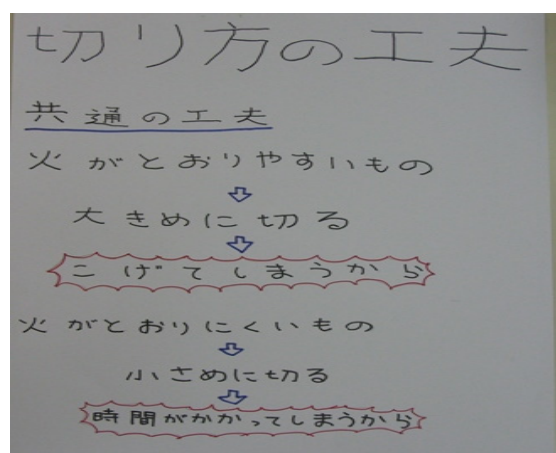 切り方の工夫
共通の工夫
火がとおりやすいもの
⇩
大きめに切る
⇩
こげてしまうから
火がとおりにくいもの
⇩
小さめに切る
⇩
時間がかかってしまうから